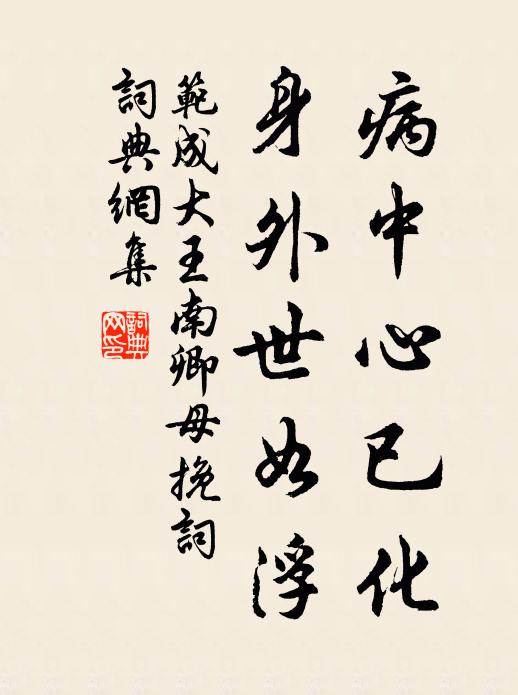 病中心已化
身外世如浮
範成大王南卿母挽詞
詞典網集
詞典網印